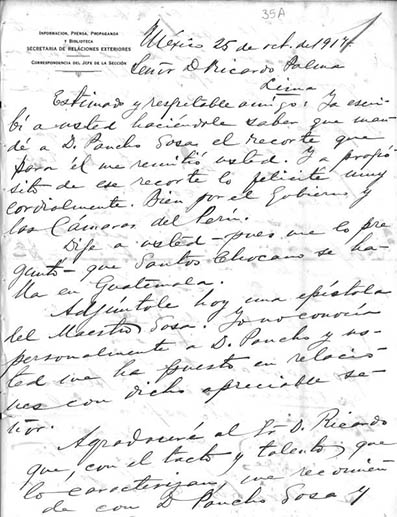 35A
INFORMACION, PRENSA, PROPAGANDA
Y BIBLIOTECA
SECRETARIA DE RELACIONES EXTERIORES
CORRESPONDENCIA DEL JEFE DE LA SECCIÓN
México 25 de oct. de 1917
Señor D. Ricardo Palma
Lima
Estimado y respetable amigo: Ya escri-
bí a usted haciéndole saber que man-
dé a D. Pancho Sosa el recorte que
para él me remitió usted. Y a propó-
sito de ese recorte lo felicito muy
cordialmente. Bien por el Gobierno y
las Cámaras del Perú.
Dije a usted - pues me lo pre
guntó - que Santos Chocano se ha-
lla en Guatemala.
Adjúntole hoy una epístola
del Maestro Sosa. Yo no conocía
personalmente a D. Pancho y us-
ted me ha puesto en relacio-
nes con dicho apreciable se-
ñor.
Agradeceré al Sr. D. Ricardo
que, con el tacto y talento que
lo caracterizan, me recomien
de con D. Pancho Sosa y